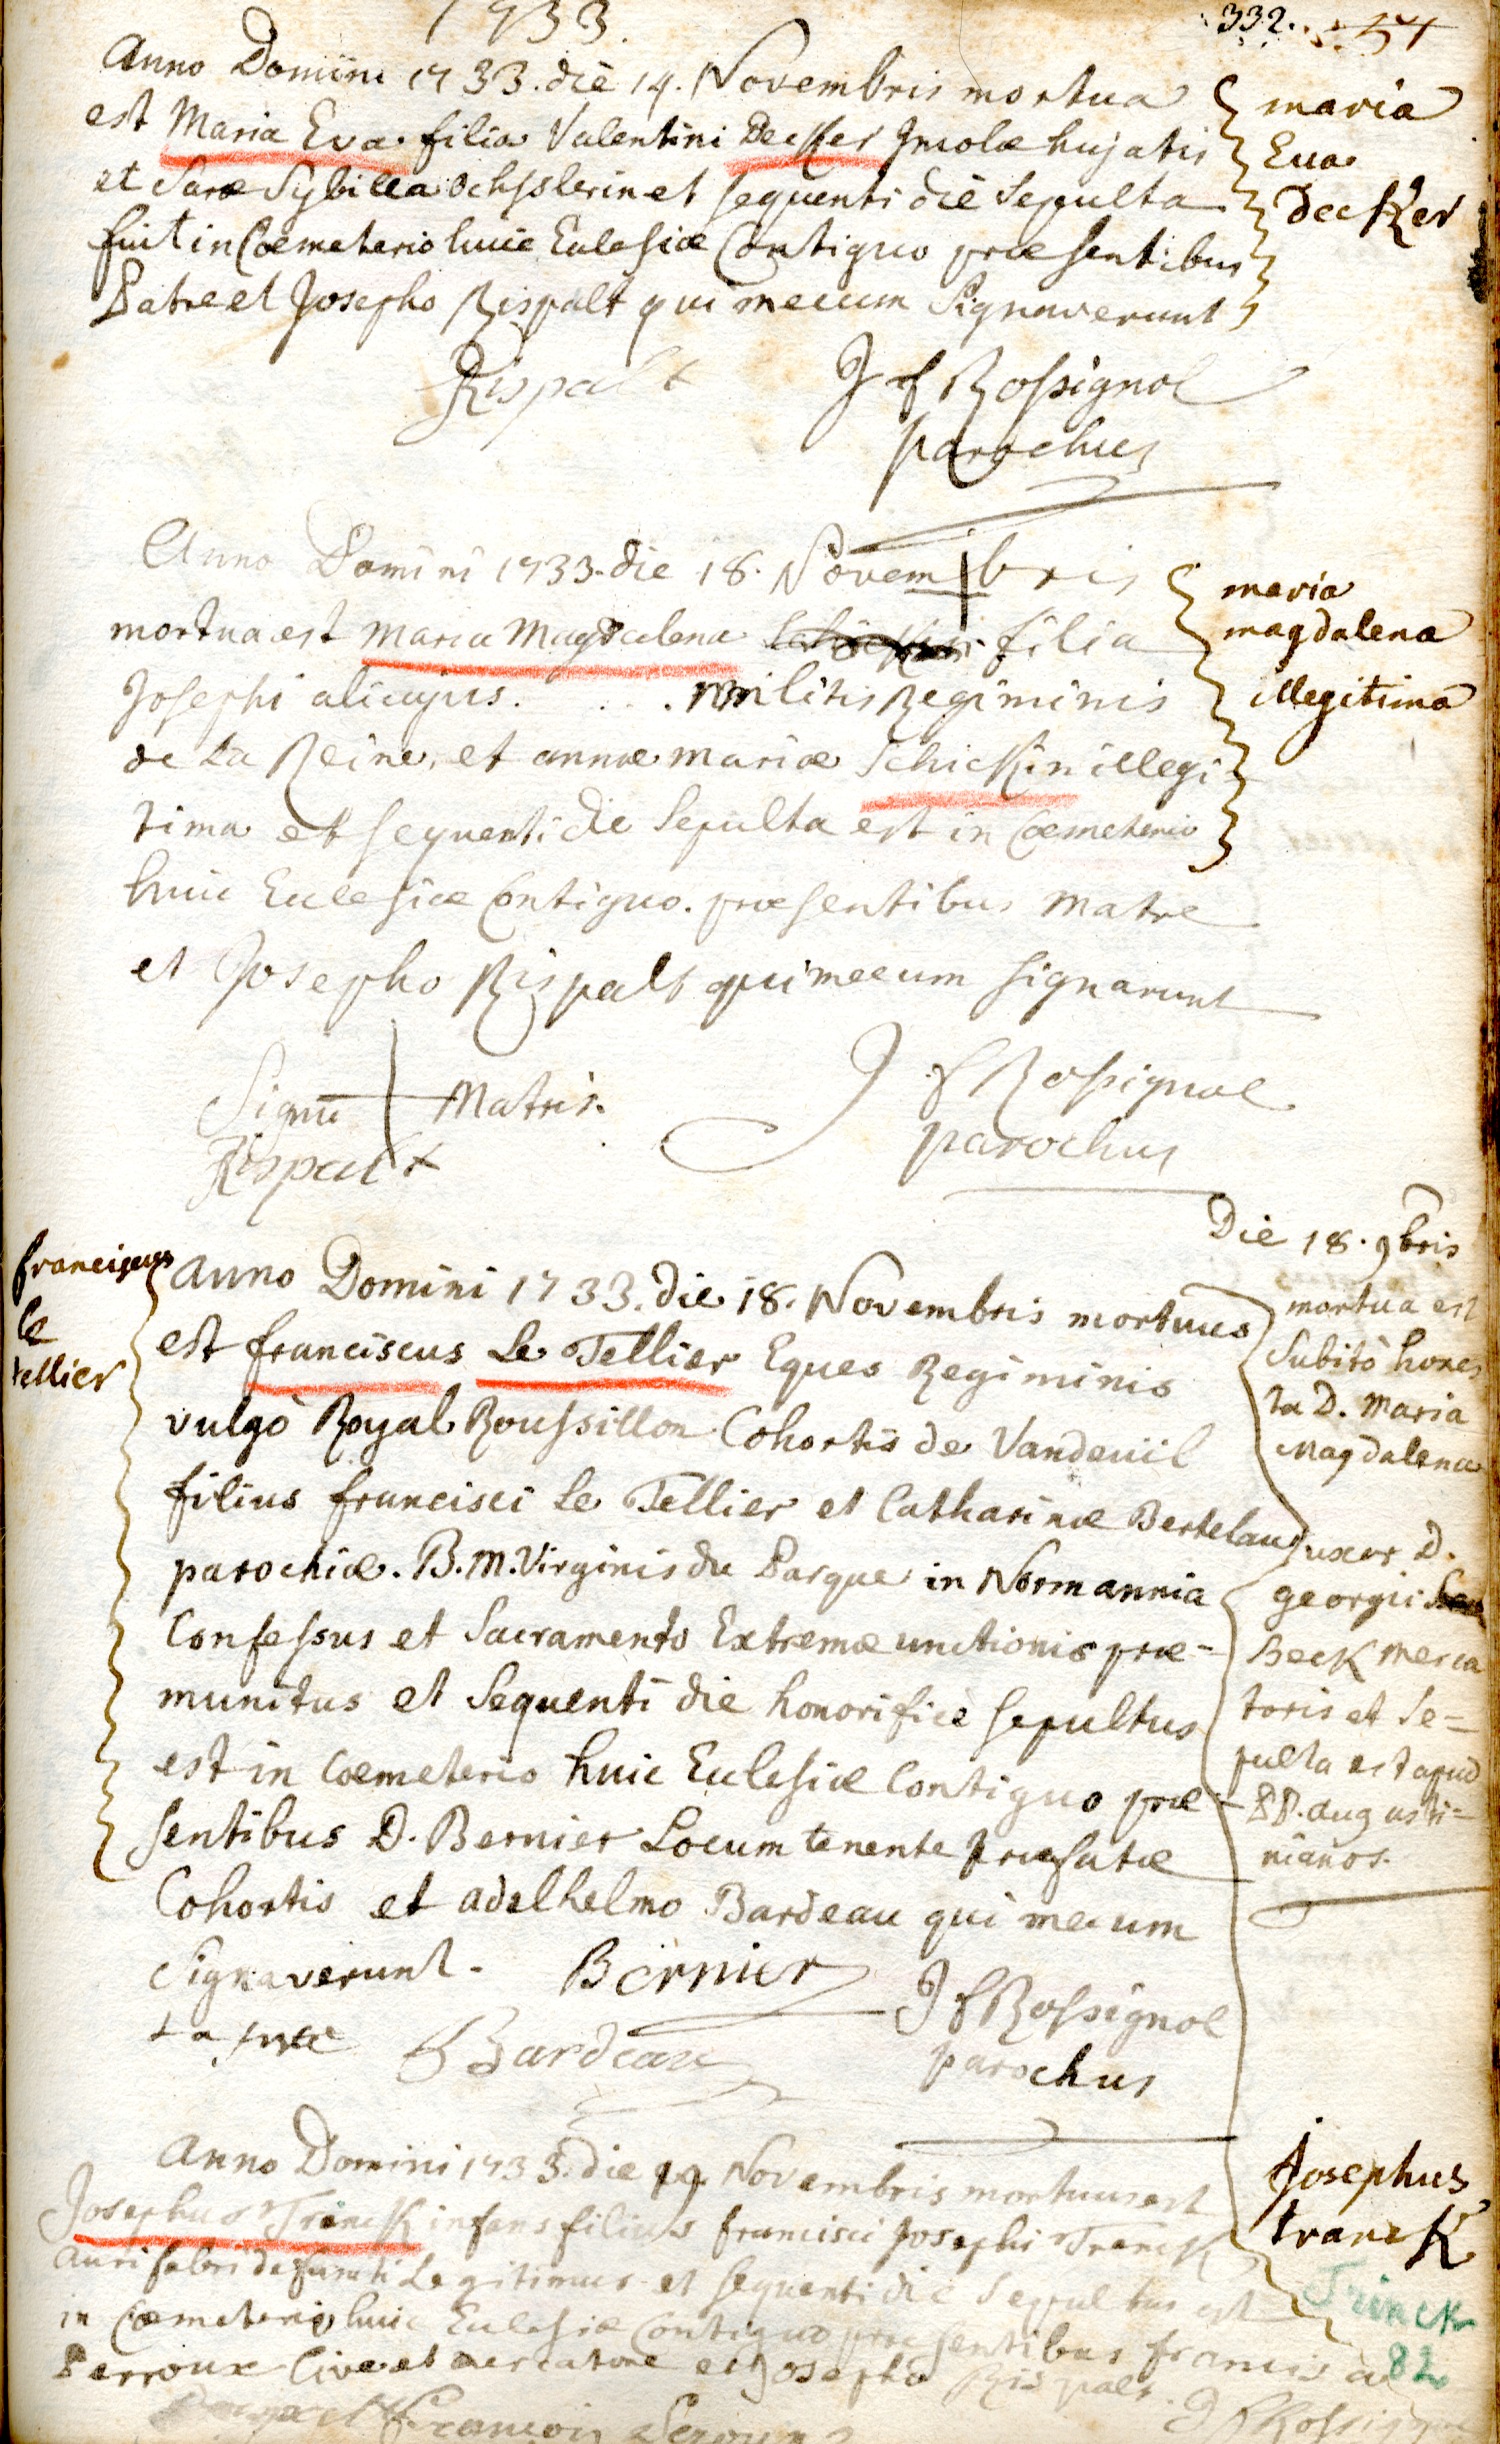 1733.
332.
Anno Domini 1733. die 14. Novembris mortua
est Maria Eva filia Valentini Decker Incolæ hujatis
et Saræ Sybilla Ochsslerin et sequenti die Sepulta
fuit in Cœmeterio huic Eclesiæ Contiguo præsentibus
Patre et Josepho Rispalt qui mecum Signaverunt
maria
Eva
Decker
Rispalt
J f Rossignol
parochus
Anno Domini 1733. die 18. Novembris
mortua est Maria Magdalena filia
Josephi alicujus. . . . militis Regiminis
de La Reine, et annæ mariæ Schickin illegi-
tima et sequenti die Sepulta est in Cœmeterio
huic Eclesiæ Contiguo. præsentibus Matre
et Josepho Rispalt qui mecum signarunt
maria
magdalena
illegitima
Signū Matris.
Rispalt
J f Rossignol
parochus
franciscus
le
tellier
Anno Domini 1733. die 18. Novembris mortuus
est franciscus Le Tellier Eques Regiminis
vulgò Royal Roussillon Cohortis de Vandeüil
filius francisci Le Tellier et Catharinæ Bertelau
parochiæ. B. M. Virginis du Parque in Normannia
Confessus et Sacramento Extremæ unctionis præ-
munitus et Sequenti die honorificè sepultus
est in Cœmeterio huic Eclesiæ Contiguo præ-
sentibus D. Bernier Locum tenente præfatæ
Cohortis et adelhelmo Bardeau qui mecum
Signaverunt.
Bernier
Bardeau
J f Rossignol
parochus
Die 18. 9bris
mortua est
Subitò hones
ta D. Maria
Magdalena
uxor D.
georgii
Beck merca
toris et Se=
pulta est apud
PP. augusti=
nianos.
Anno Domini 1733. die 19 Novembris mortuus est
Josephus Trenck infans filius francisci Josephi Trenck
aurifabri defuncti Legitimus et sequenti die Sepultus est
in Cœmeterio huic Eclesiæ Contiguo præsentibus francisco
Perroux Cive et mercatore et Josepho Rispalt.
Josephus
tranck
Trinck
82
François Peroux
J f Rossignol